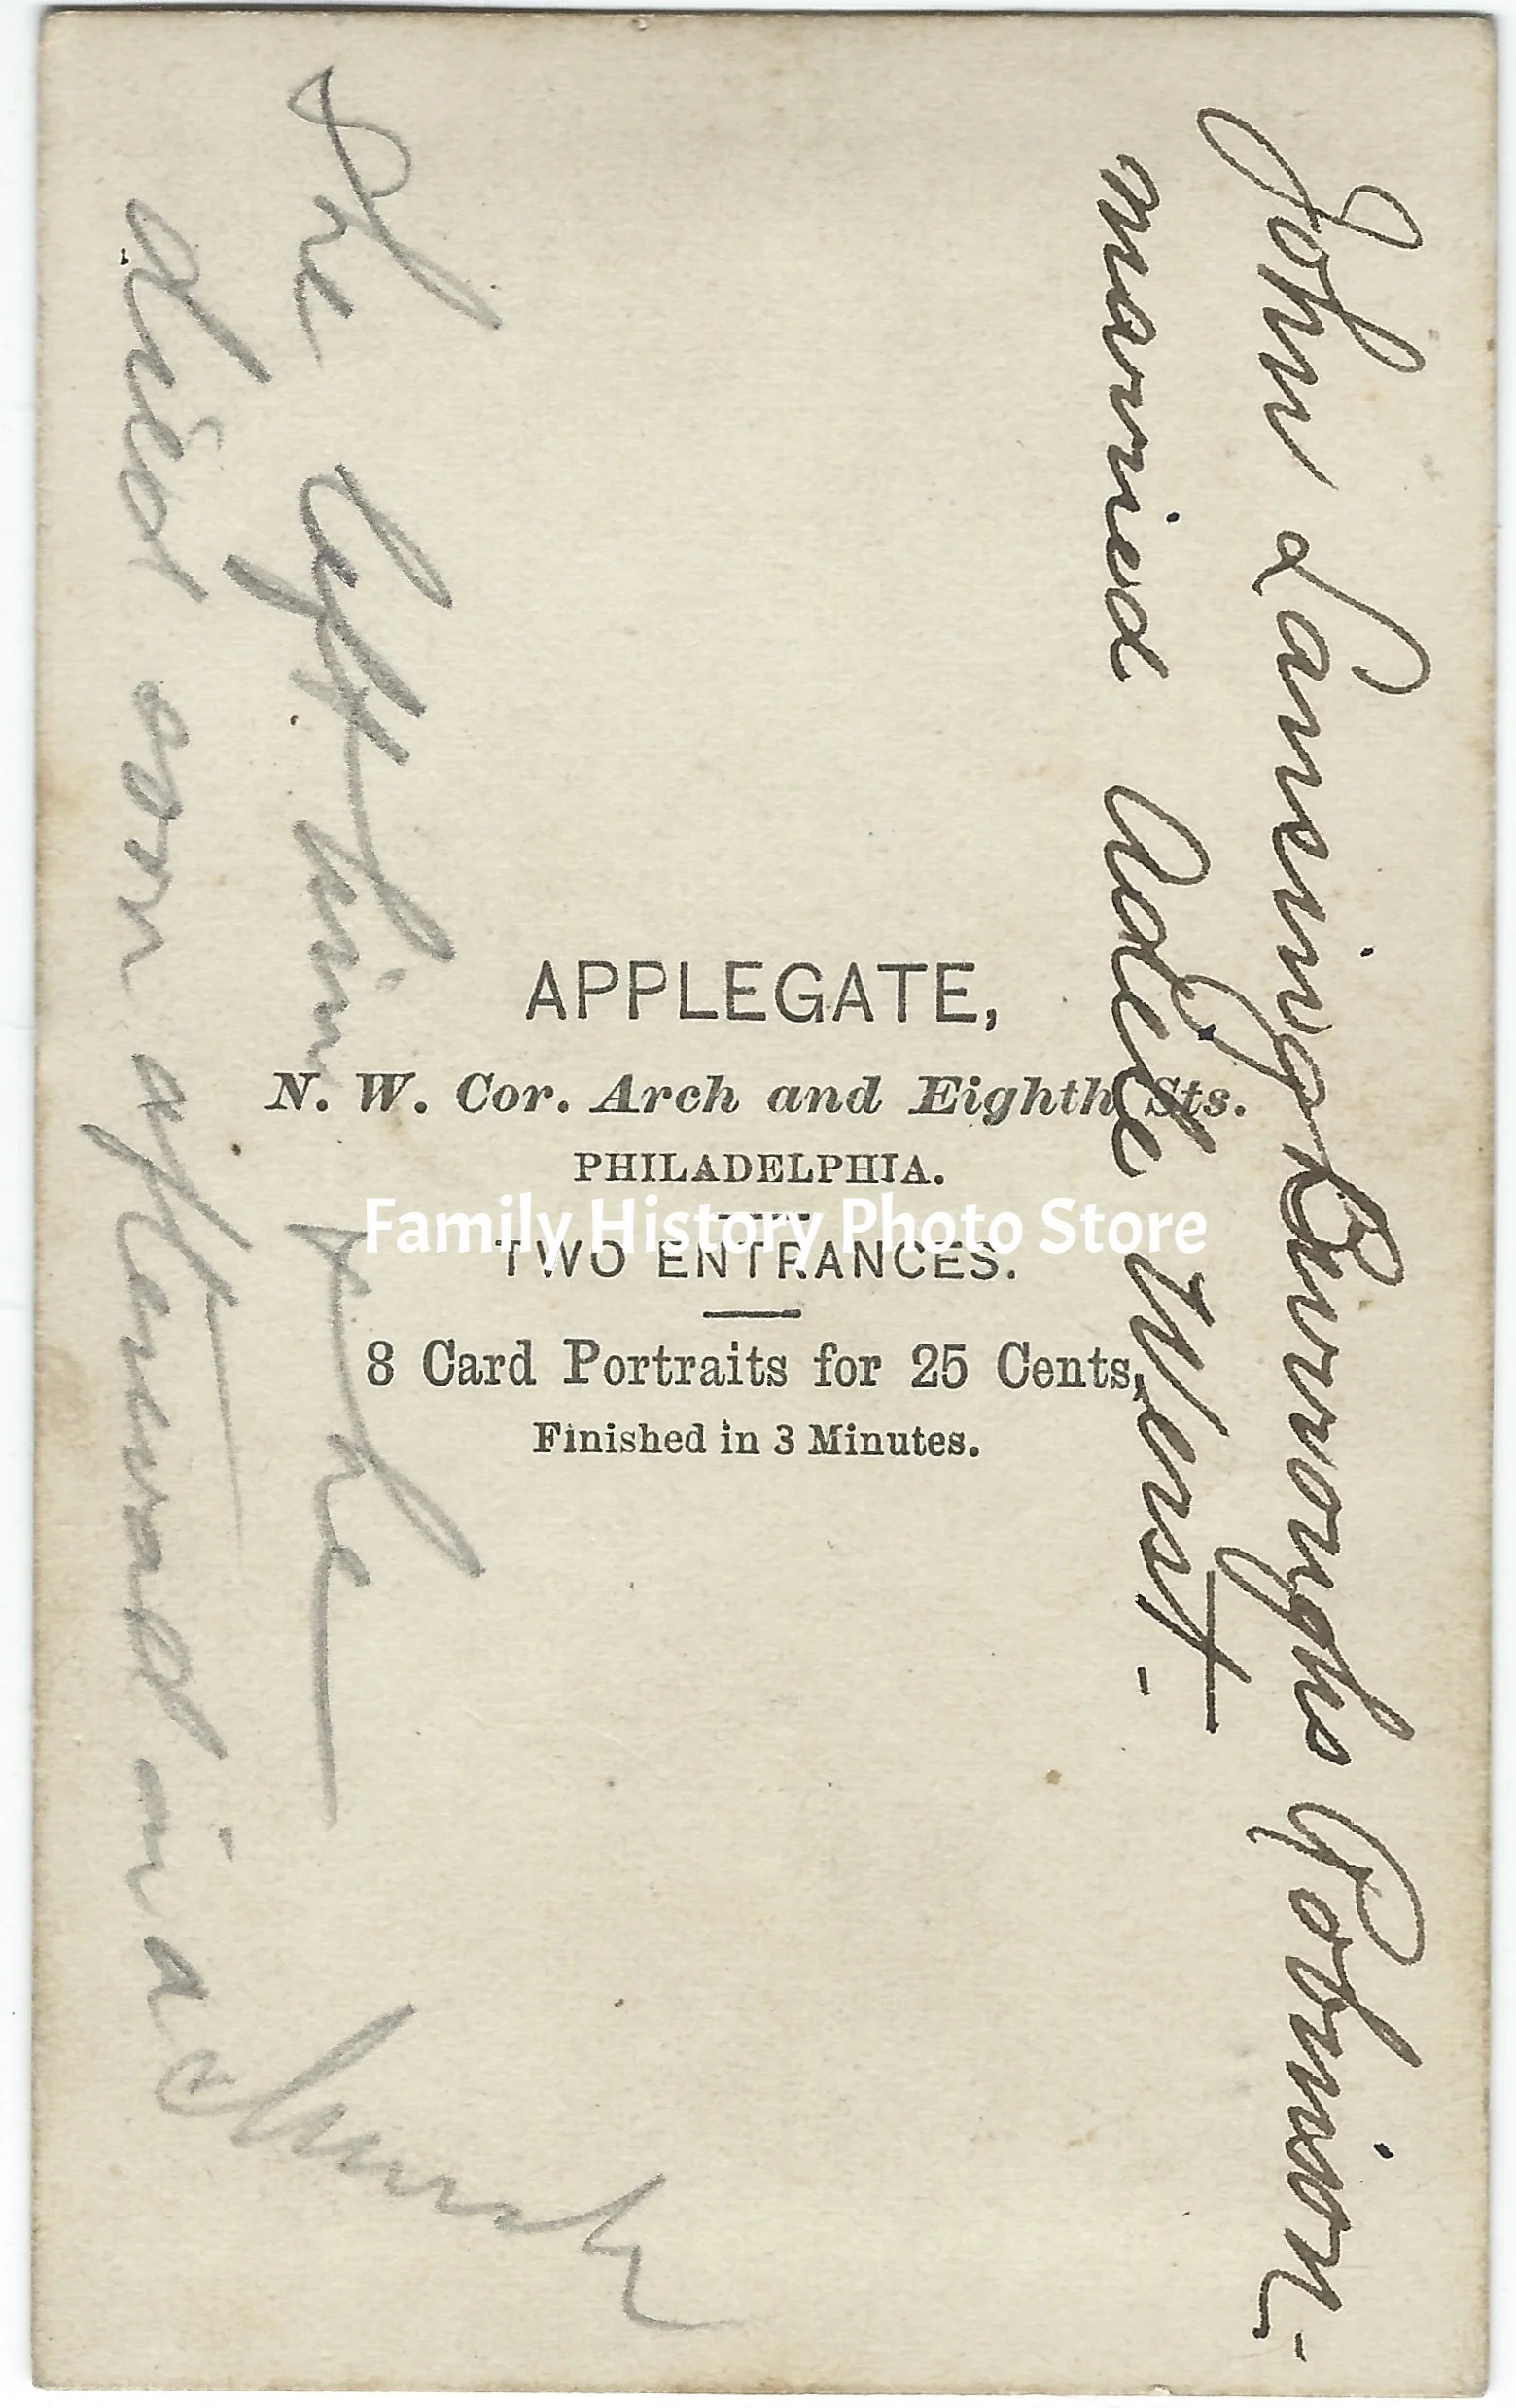 John Lansing Burroughs Robinson-
married Adele Wenst-
APPLEGATE,
N. W. Cor. Arch and Eighth Sts.
PHILADELPHIA.
Family History Photo Store
TWO ENTRANCES.
8 Card Portraits for 25 Cents,
Finished in 3 Minutes.
She left him & he
died soon afterward in a drunk